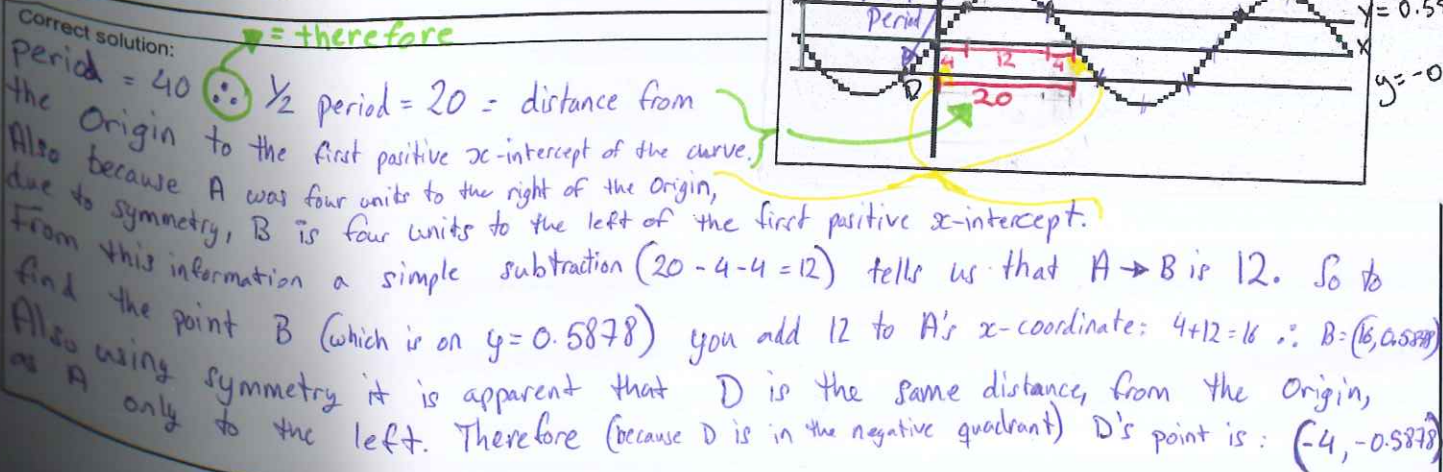 Correct solution:
∴ = therefore
Period = 40 ∴ ½ period = 20 = distance from
the Origin to the first positive x-intercept of the curve.
Also because A was four units to the right of the Origin,
due to symmetry, B is four units to the left of the first positive x-intercept.
From this information a simple subtraction (20 - 4 - 4 = 12) tells us that A → B is 12. So to
find the point B (which is on y = 0.5878) you add 12 to A's x-coordinate: 4+12 = 16 ∴ B = (16, 0.5878)
Also using symmetry it is apparent that D is the same distance, from the Origin,
as A only to the left. Therefore (because D is in the negative quadrant) D's point is: (-4, -0.5878)
Period
y = 0.58
x
4 12 4
D
20
y = -0